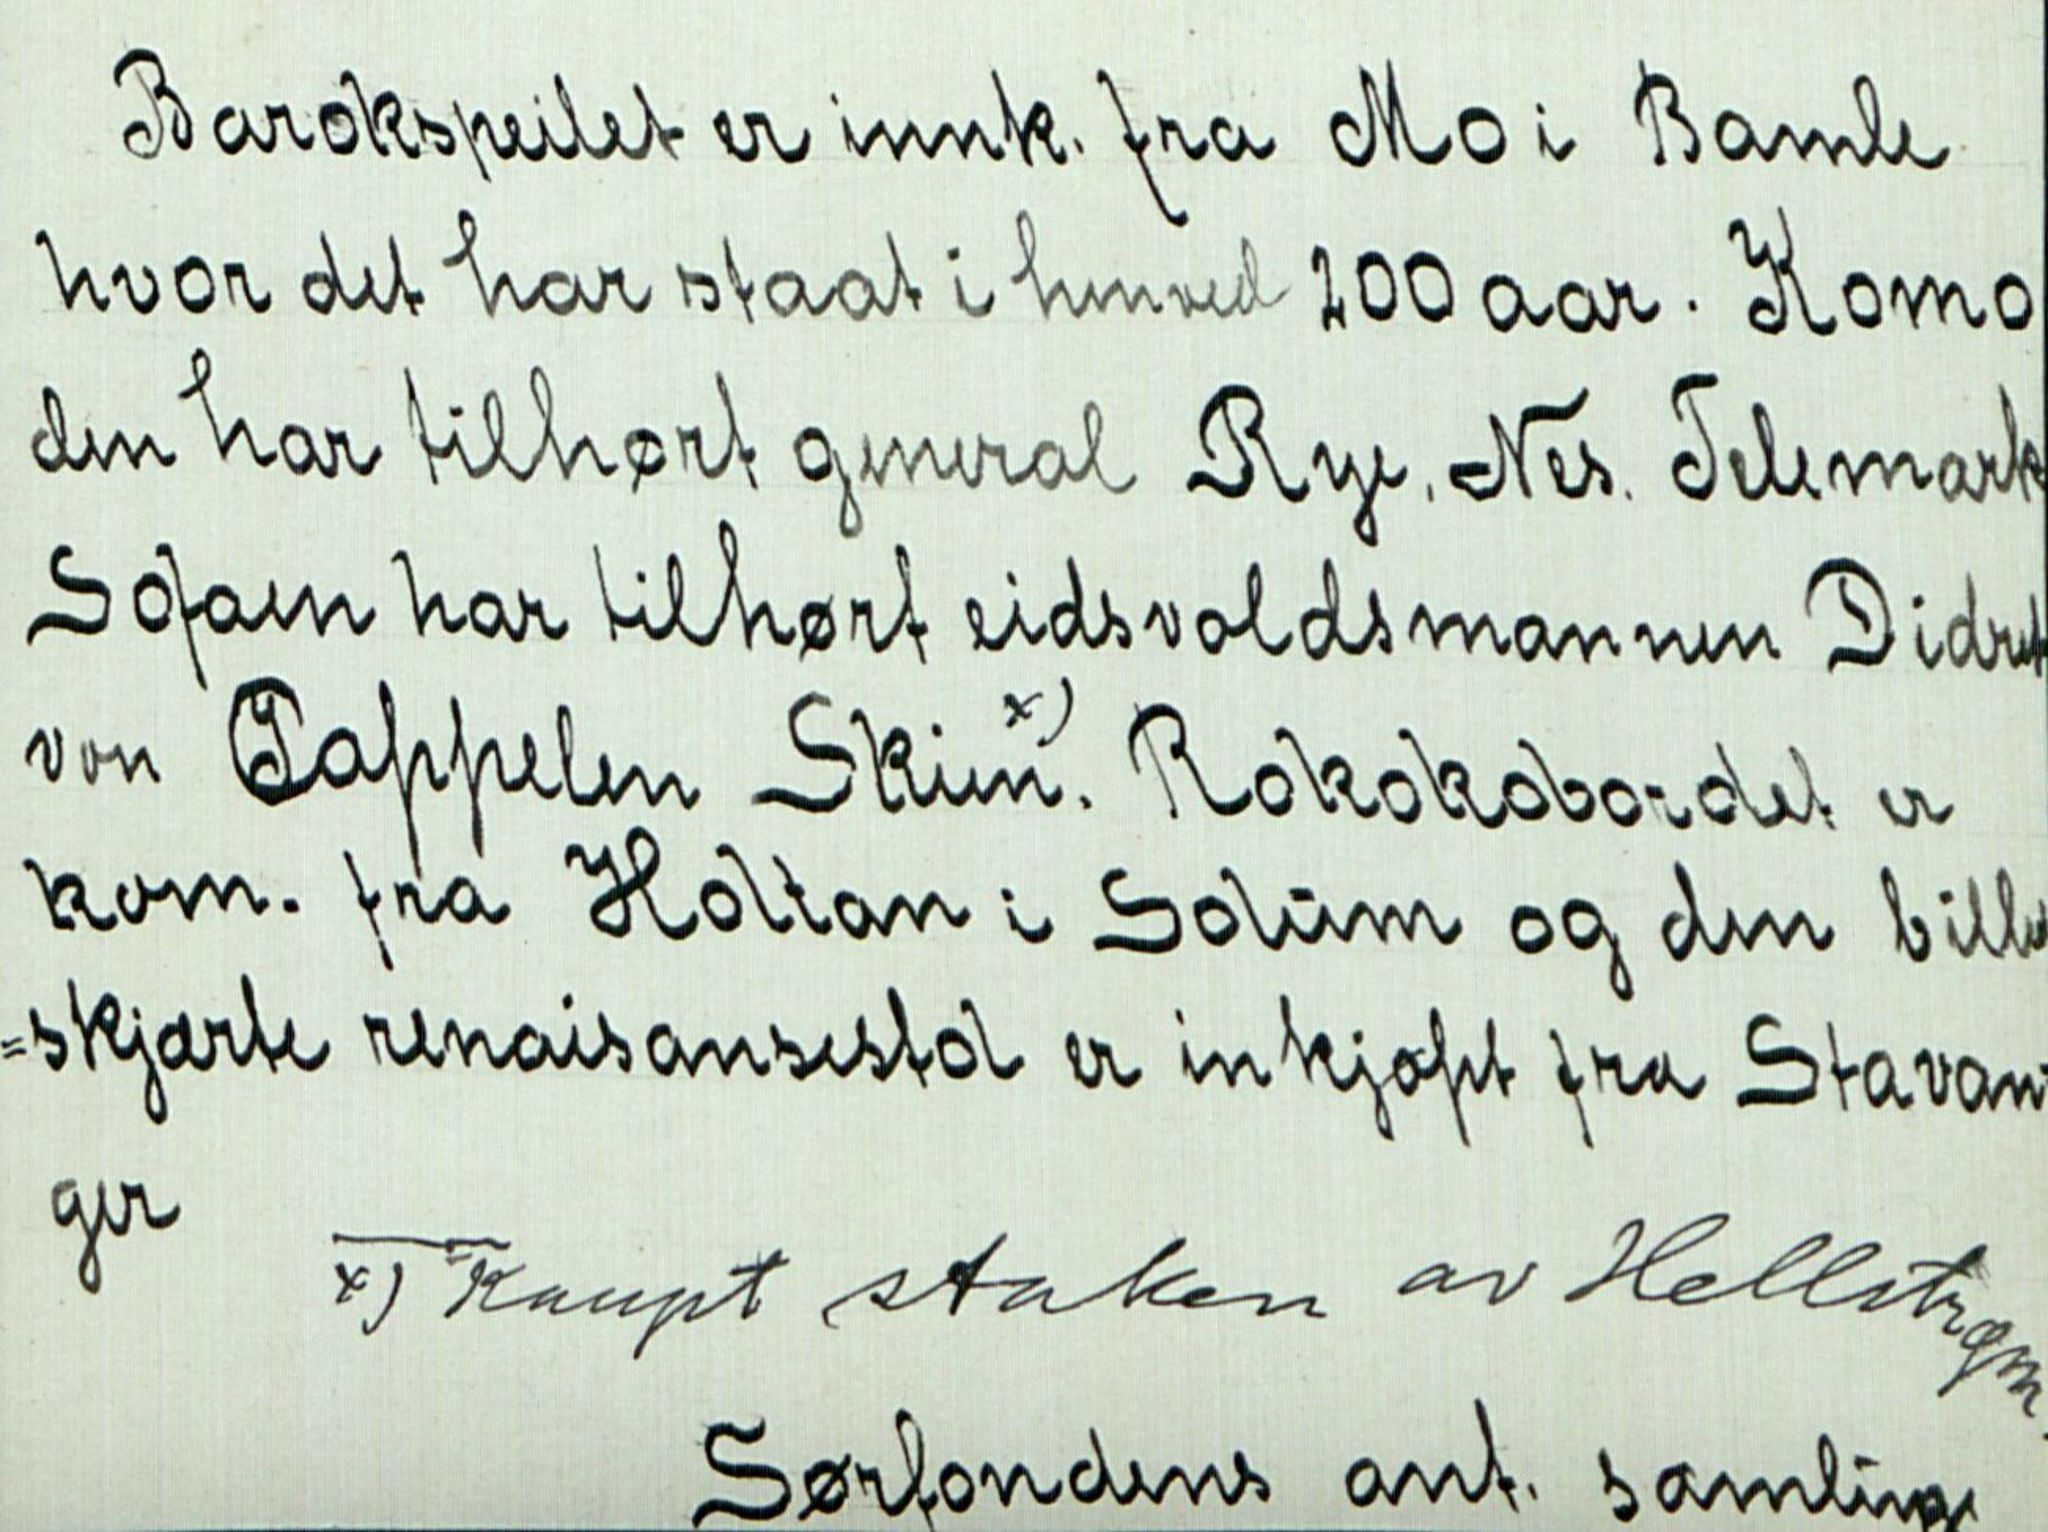 Barokspeilet er innk. fra Mo i Bamle
hvor det har staat i henved 200 aar. Komo
den har tilhørt general Rye, Nes. Telemark
Sofaen har tilhørt eidsvoldsmannen Didrik
von Cappelen Skien x). Rokokobordet er
kom. fra Holtan i Solum og den bille
=skjærte renaisansestol er inkjøpt fra Stavan
ger
x) Kaupt staken av Hellstrøm.
Sørfondens ant. samling